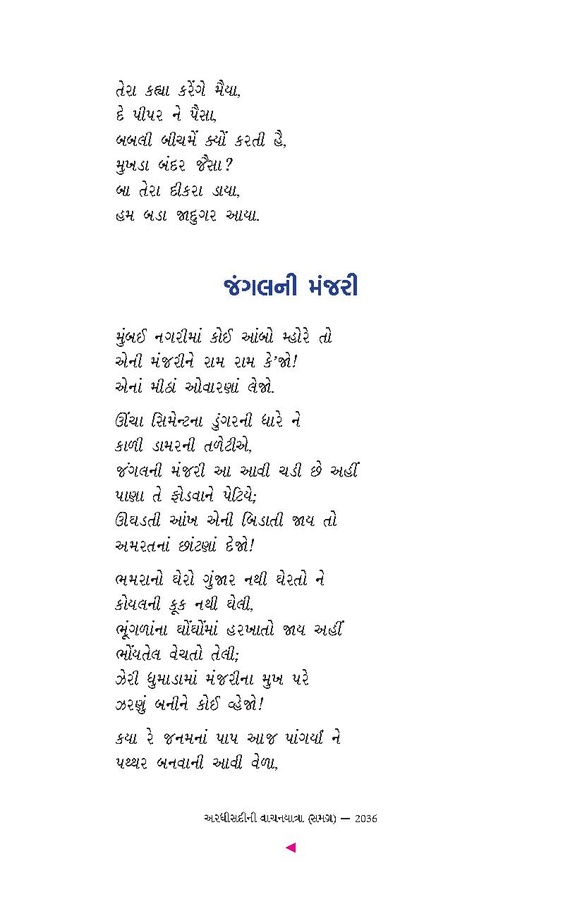 તેરા કહ્યા કરેંગે મૈયા,
દે પીપર ને પૈસા,
બબલી બીચમેં ક્યોં કરતી હૈ,
મુખડા બંદર જૈસા?
બા તેરા દીકરા ડાયા,
હમ બડા જાદુગર આયા.
જંગલની મંજરી
મુંબઈ નગરીમાં કોઈ આંબો મ્હોરે તો
એની મંજરીને રામ રામ કે’જો!
એનાં મીઠાં ઓવારણાં લેજો.
ઊંચા સિમેન્ટના ડુંગરની ધારે ને
કાળી ડામરની તળેટીએ,
જંગલની મંજરી આ આવી ચડી છે અહીં
પાણા તે ફોડવાને પેટિયે;
ઊઘડતી આંખ એની બિડાતી જાય તો
અમરતનાં છાંટણાં દેજો!
ભમરાનો ઘેરો ગુંજાર નથી ઘેરતો ને
કોયલની કૂક નથી ઘેલી,
ભૂંગળાંના ઘોંઘોંમાં હરખાતો જાય અહીં
ભોંયતેલ વેચતો તેલી;
ઝેરી ધુમાડામાં મંજરીના મુખ પરે
ઝરણું બનીને કોઈ વ્હેજો!
કયા રે જનમનાં પાપ આજ પાંગર્યાં ને
પથ્થર બનવાની આવી વેળા,
અરધીસદીની વાચનયાત્રા (સમગ્ર) — 2036